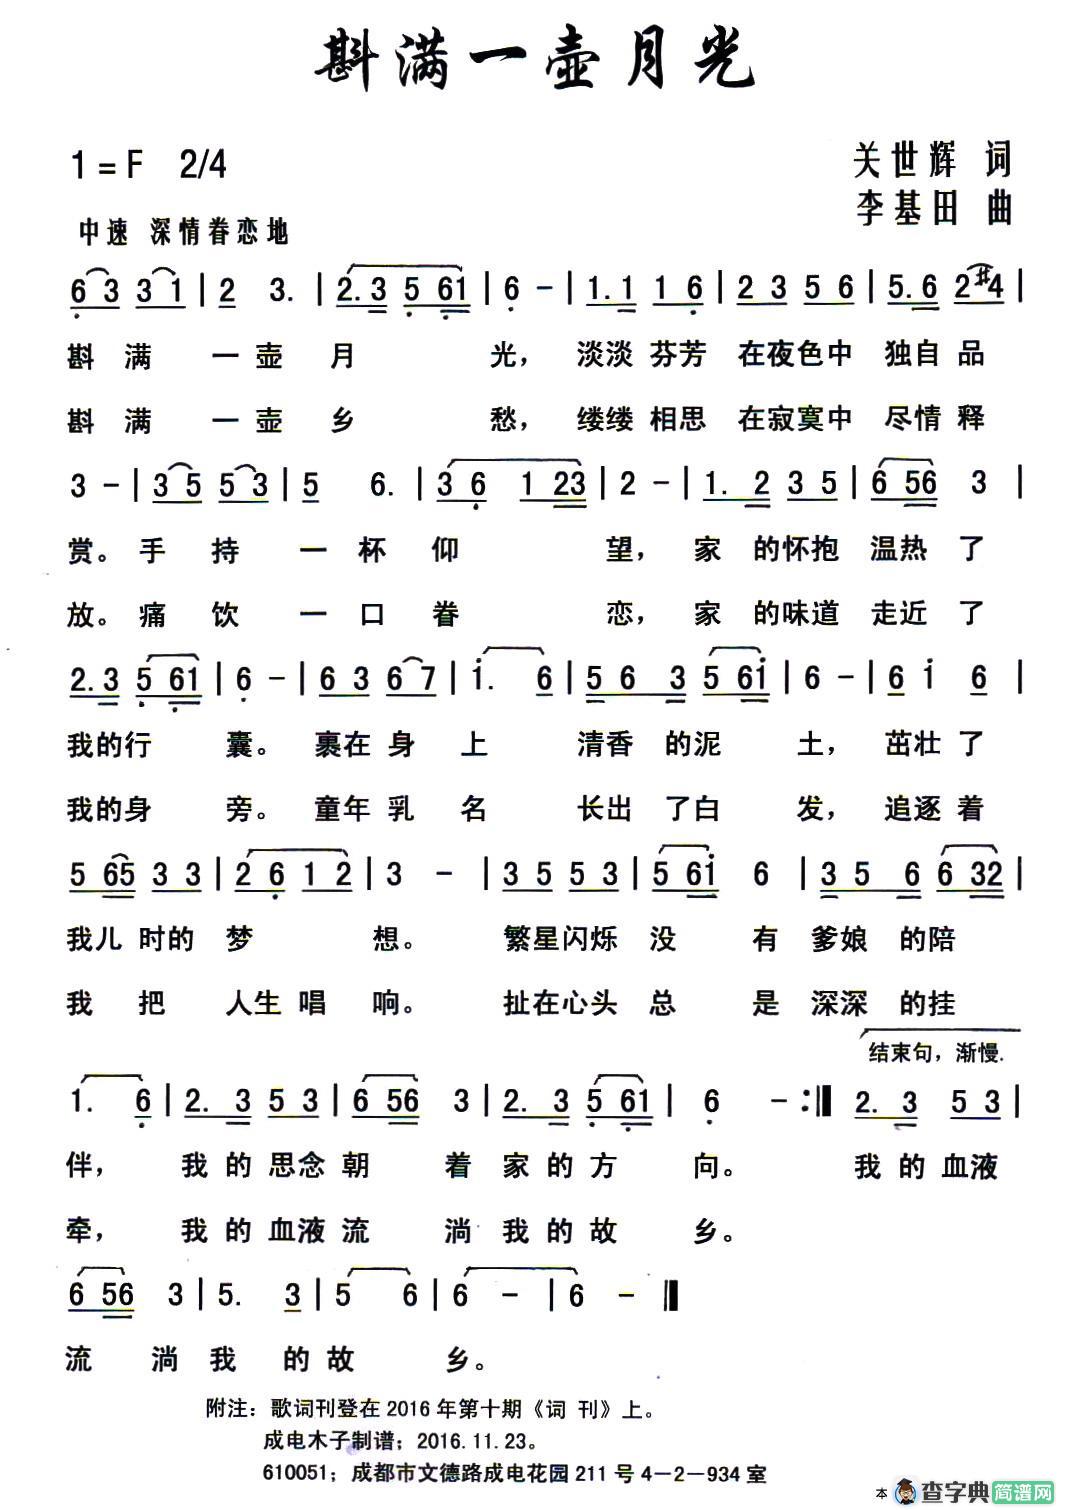 斟满一壶月光
1=F 2/4
关世辉 词
李基田 曲
中速 深情眷恋地
6 3 3 1 | 2 3. | 2.3 5 61 | 6 - | 1.1 1 6 | 2 3 5 6 | 5.6 2#4 |
斟 满 一 壶 月 光， 淡淡 芬芳 在夜色中 独自 品
斟 满 一 壶 乡 愁， 缕缕 相思 在寂寞中 尽情 释
3 - | 3 5 5 3 | 5 6. | 3 6 1 23 | 2 - | 1. 2 3 5 | 6 56 3 |
赏。 手 持 一 杯 仰 望， 家 的怀抱 温热 了
放。 痛 饮 一 口 眷 恋， 家 的味道 走近 了
2.3 5 61 | 6 - | 6 3 6 7 | 1. 6 | 5 6 3 5 61 | 6 - | 6 1 6 |
我的行 囊。 裹在 身 上 清香 的泥 土， 茁壮 了
我的身 旁。 童年 乳 名 长出 了白 发， 追逐 着
5 65 3 3 | 2 6 1 2 | 3 - | 3 5 5 3 | 5 61 6 | 3 5 6 6 32 |
我儿 时的 梦 想。 繁星闪烁 没 有 爹娘 的陪
我 把 人生 唱 响。 扯在心头 总 是 深深 的挂
结束句，渐慢.
1. 6 | 2. 3 5 3 | 6 56 3 | 2. 3 5 61 | 6 - :‖ 2. 3 5 3 |
伴， 我 的 思念 朝 着 家 的 方 向。 我 的 血液
牵， 我 的 血液 流 淌 我 的 故 乡。
6 56 3 | 5. 3 | 5 6 | 6 - | 6 - ‖
流 淌 我 的 故 乡。
附注：歌词刊登在2016年第十期《词 刊》上。
成电木子制谱；2016.11.23。
610051；成都市文德路成电花园211号4-2-934室
本 查字典 简谱网